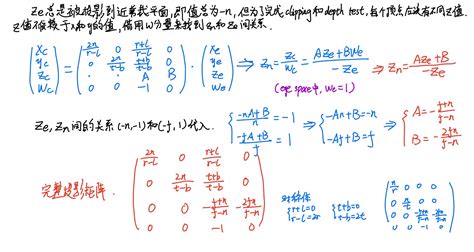 Ze总是被投影到近裁剪平面，即值总为-n，但为了完成clipping和depth test，每个顶点应该有不同Z值。
Z值不依赖于x和y的值，借用W分量来找到Zn和Ze间关系。
(Xc Yc Zc Wc) = (2n/(r-l) 0 (r+l)/(r-l) 0; 0 2n/(t-b) (t+b)/(t-b) 0; · · A B; 0 0 -1 0) · (Xe Ye Ze We) ⇒ Zn = Zc/Wc = (AZe+BWe)/-Ze ⇒ Zn = (AZe+B)/-Ze
(eye space中, We=1)
Ze, Zn间的关系(-n,-1)和(-f,1)代入. { (-nA+B)/n = -1, (-fA+B)/f = 1 ⇒ { -An+B=-n, -Af+B=f ⇒ { A = -(f+n)/(f-n), B = -2fn/(f-n)
完整投影矩阵. (2n/(r-l) 0 (r+l)/(r-l) 0; 0 2n/(t-b) (t+b)/(t-b) 0; 0 0 -(f+n)/(f-n) -2fn/(f-n); 0 0 -1 0)
{ r+l=0, r-l=2r { t+b=0, t-b=2t (n/r 0 0 0; 0 n/t 0 0; 0 0 -(f+n)/(f-n) -2fn/(f-n); 0 0 -1 0)